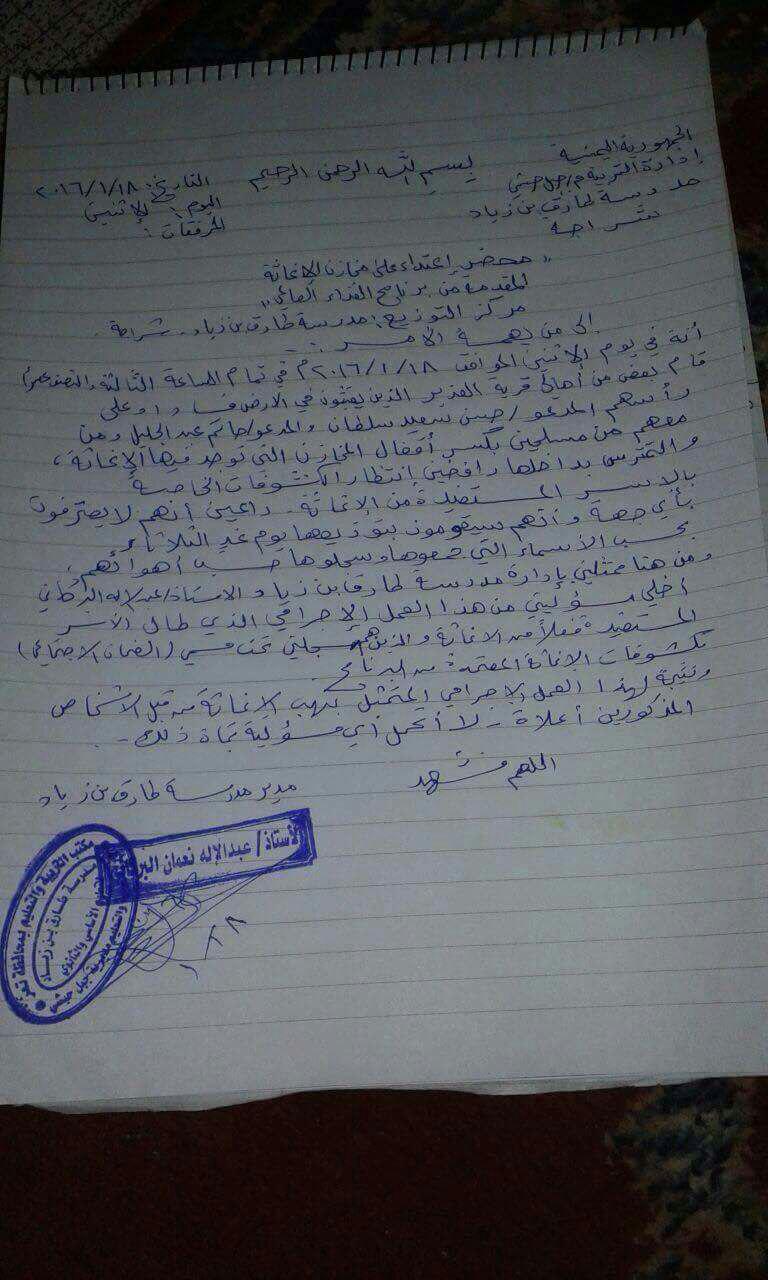 الجمهورية اليمنية
إدارة التربية م/جبل حبشي
مدرسة طارق بن زياد
شراجة
بسم الله الرحمن الرحيم
التاريخ: ٢٠١٦/١/١٨
اليوم: الإثنين
المرفقات:
"محضر إعتداء على مخازن الإغاثة
المقدمة من برنامج الغذاء العالمي"
مركز التوزيع: مدرسة طارق بن زياد - شراجة
إلى من يهمه الأمر :-
أنه في يوم الإثنين الموافق ٢٠١٦/١/١٨م في تمام الساعة الثالثة والنصف عصراً
قام بعض من أهالي قرية الغدير الذين يعيثون في الارض فسادا وعلى
رأسهم المدعو/ حسن سعيد سلطان والمدعو/ حاتم عبد الجليل ومن
معهم من مسلحين بكسر أقفال المخازن التي توجد فيها الإغاثة،
والتمترس بداخلها رافضين إنتظار الكشوفات الخاصة
بالاسر المستفيدة من الإغاثة - داعين أنهم لا يعترفون
بأي جهة وأنهم سيقومون بتوزيعها يوم غدٍ الثلاثاء
بحسب الأسماء التي جمعوها وسجلوها حسب أهوائهم،
ومن هنا ممثلني بإدارة مدرسة طارق بن زياد الاستاذ/عبد الإله البركاني
أخلي مسؤليتي من هذا العمل الإجرامي الذي طال الأسر
المستفيدة فعلاً من الاغاثة والذين هم تحت (الضمان الاجتماعي)
بكشوفات الاغاثة المعتمدة من البرنامج.
ونتيجة لهذا العمل الإجرامي المتمثل بنهب الإغاثة من قبل الاشخاص
المذكورين أعلاه - لا أتحمل أي مسؤلية تجاة ذلك -.
اللهم فشهد
مدير مدرسة طارق بن زياد
الأستاذ/ عبدالإله نعمان البركاني
مكتب التربية والتعليم بمحافظة تعز
مدرسة طارق بن زياد
للتعليم الأساسي والثانوي
والتعليم مديرية جبل حبشي
١/١٨